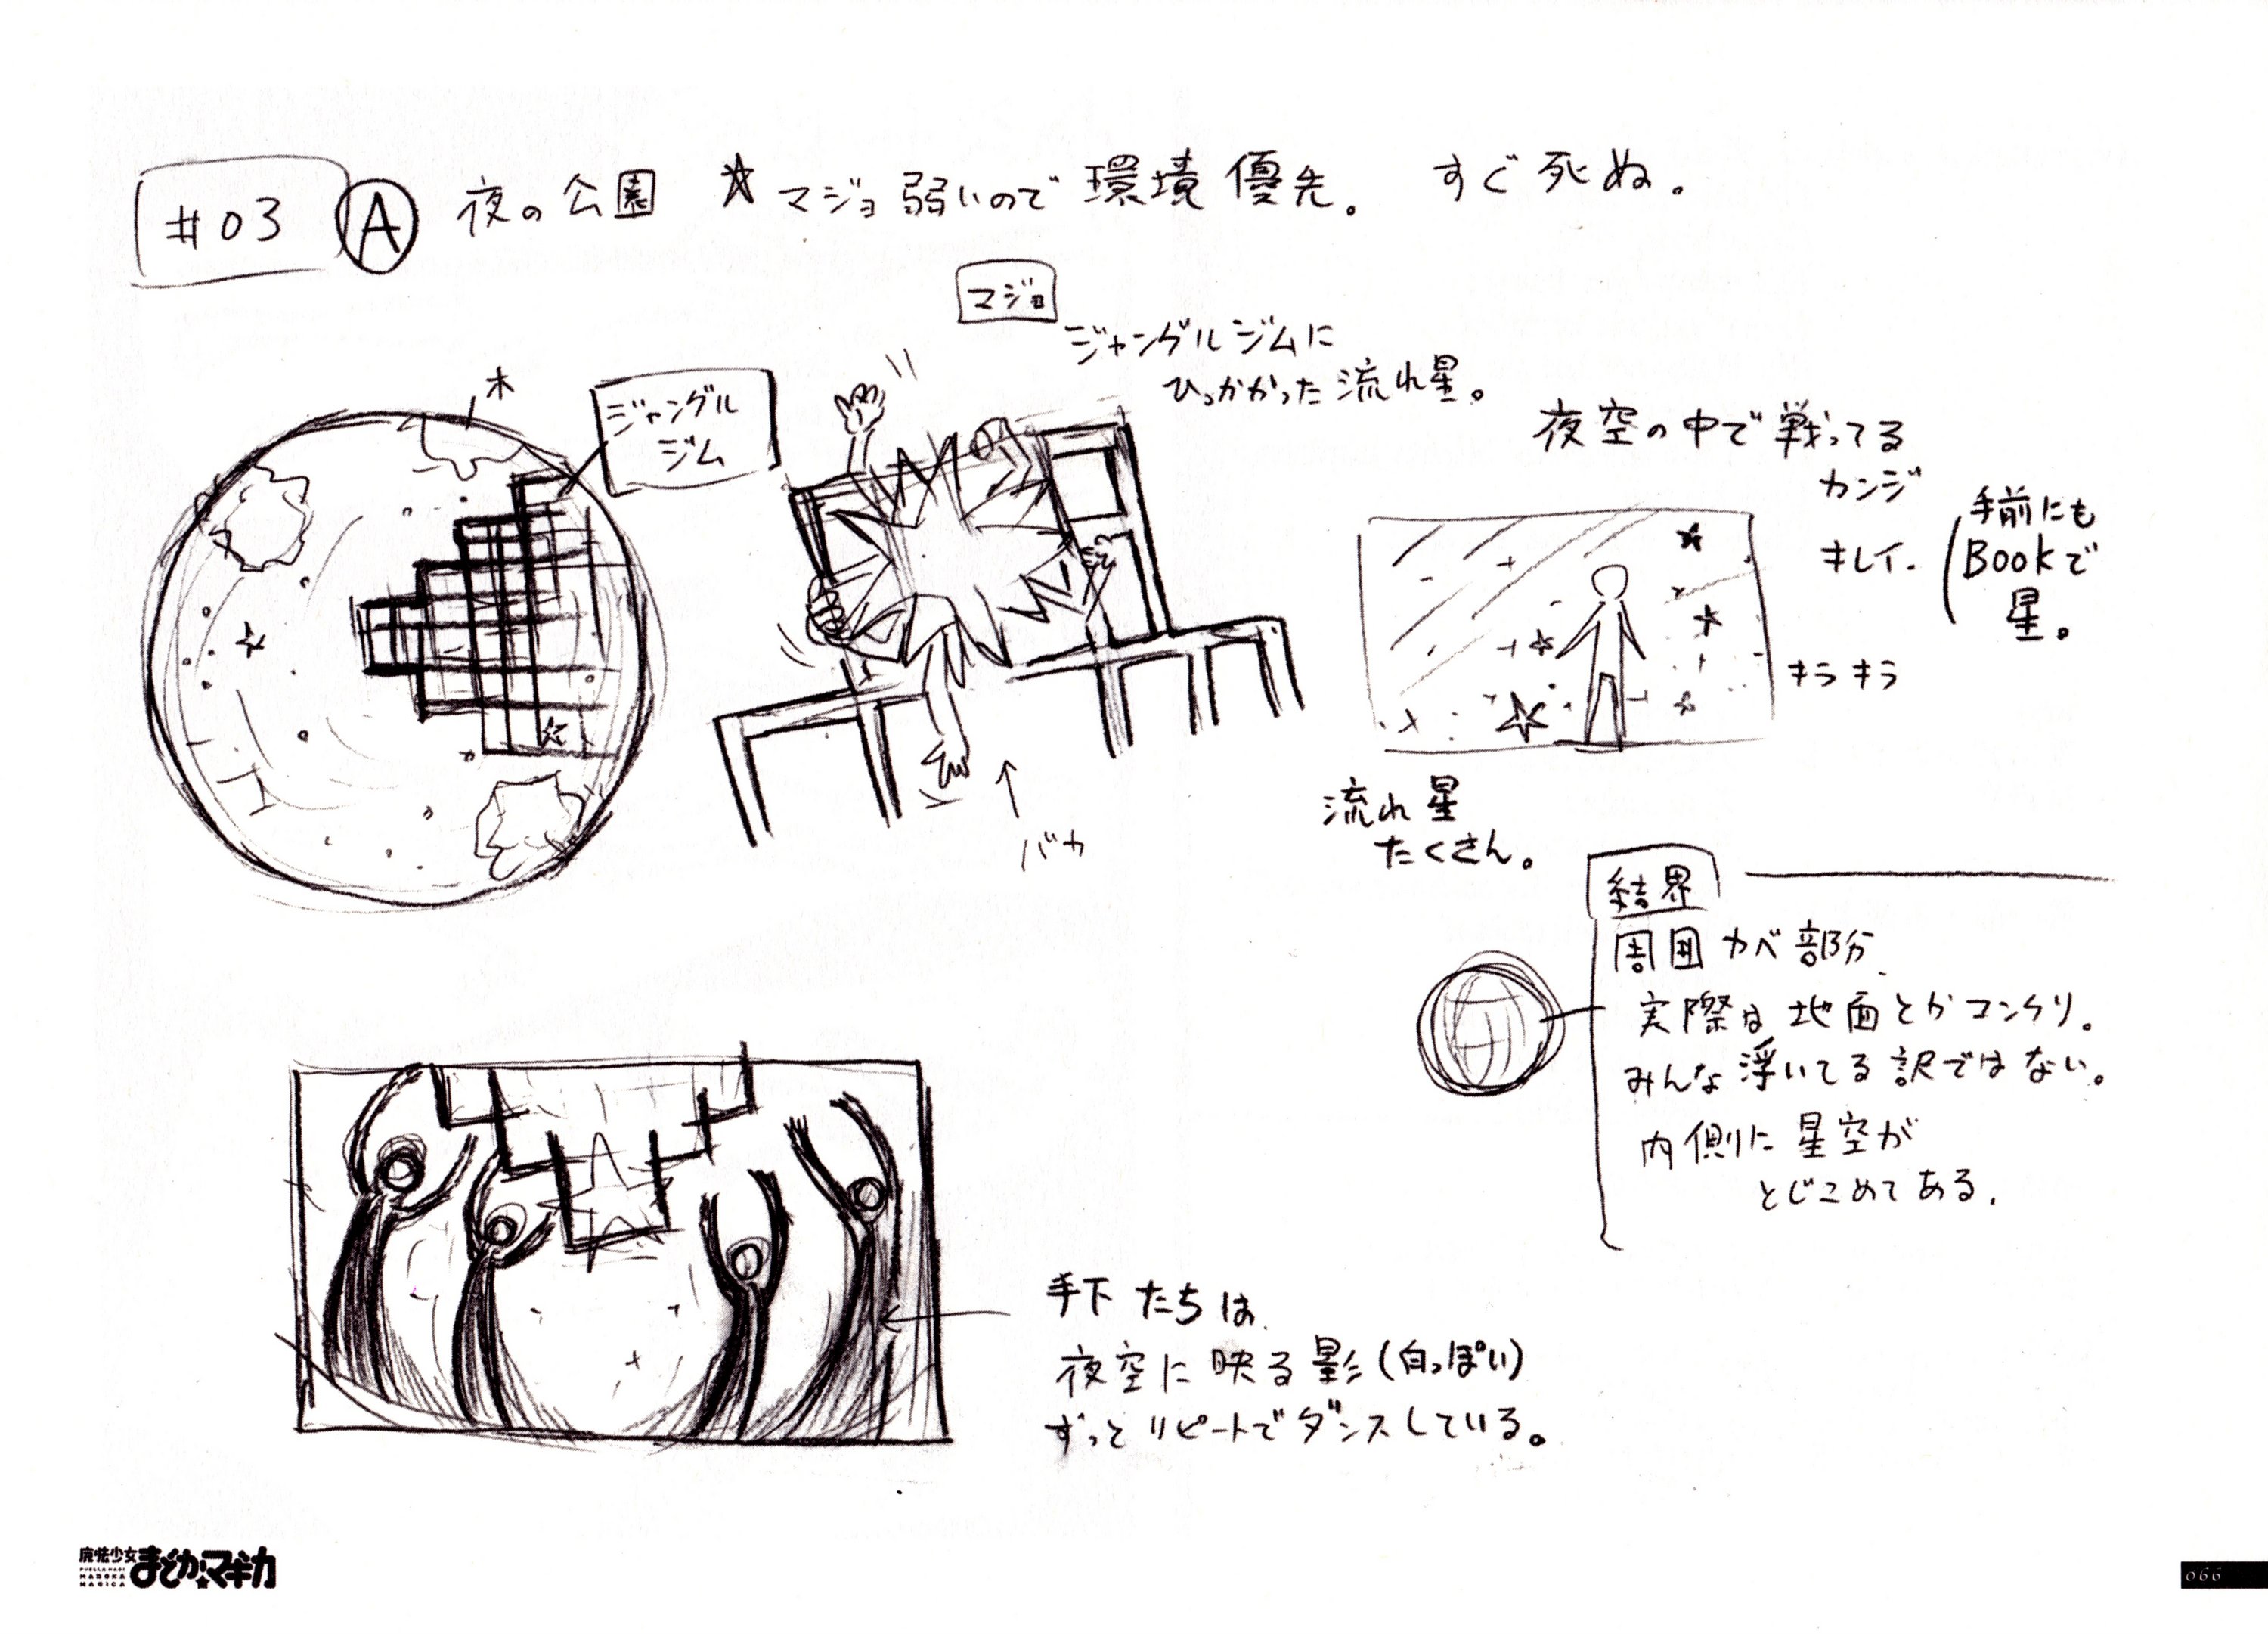 #03 Ⓐ 夜の公園 ☆マジョ弱いので環境優先。 すぐ死ぬ。
マジョ
ジャングルジムに
ひっかかった流れ星。
木
ジャングル
ジム
バカ
夜空の中で戦ってる
カンジ
キレイ.
手前にも
Bookで
星。
キラキラ
流れ星
たくさん。
結界
周囲カベ部分.
実際は地面とかコンクリ。
みんな浮いてる訳ではない。
内側に星空が
とじこめてある.
手下たちは
夜空に映る影(白っぽい)
ずっとリピートでダンスしている。
魔法少女
まどか☆マギカ
PUELLA MAGI
MADOKA
MAGICA
066